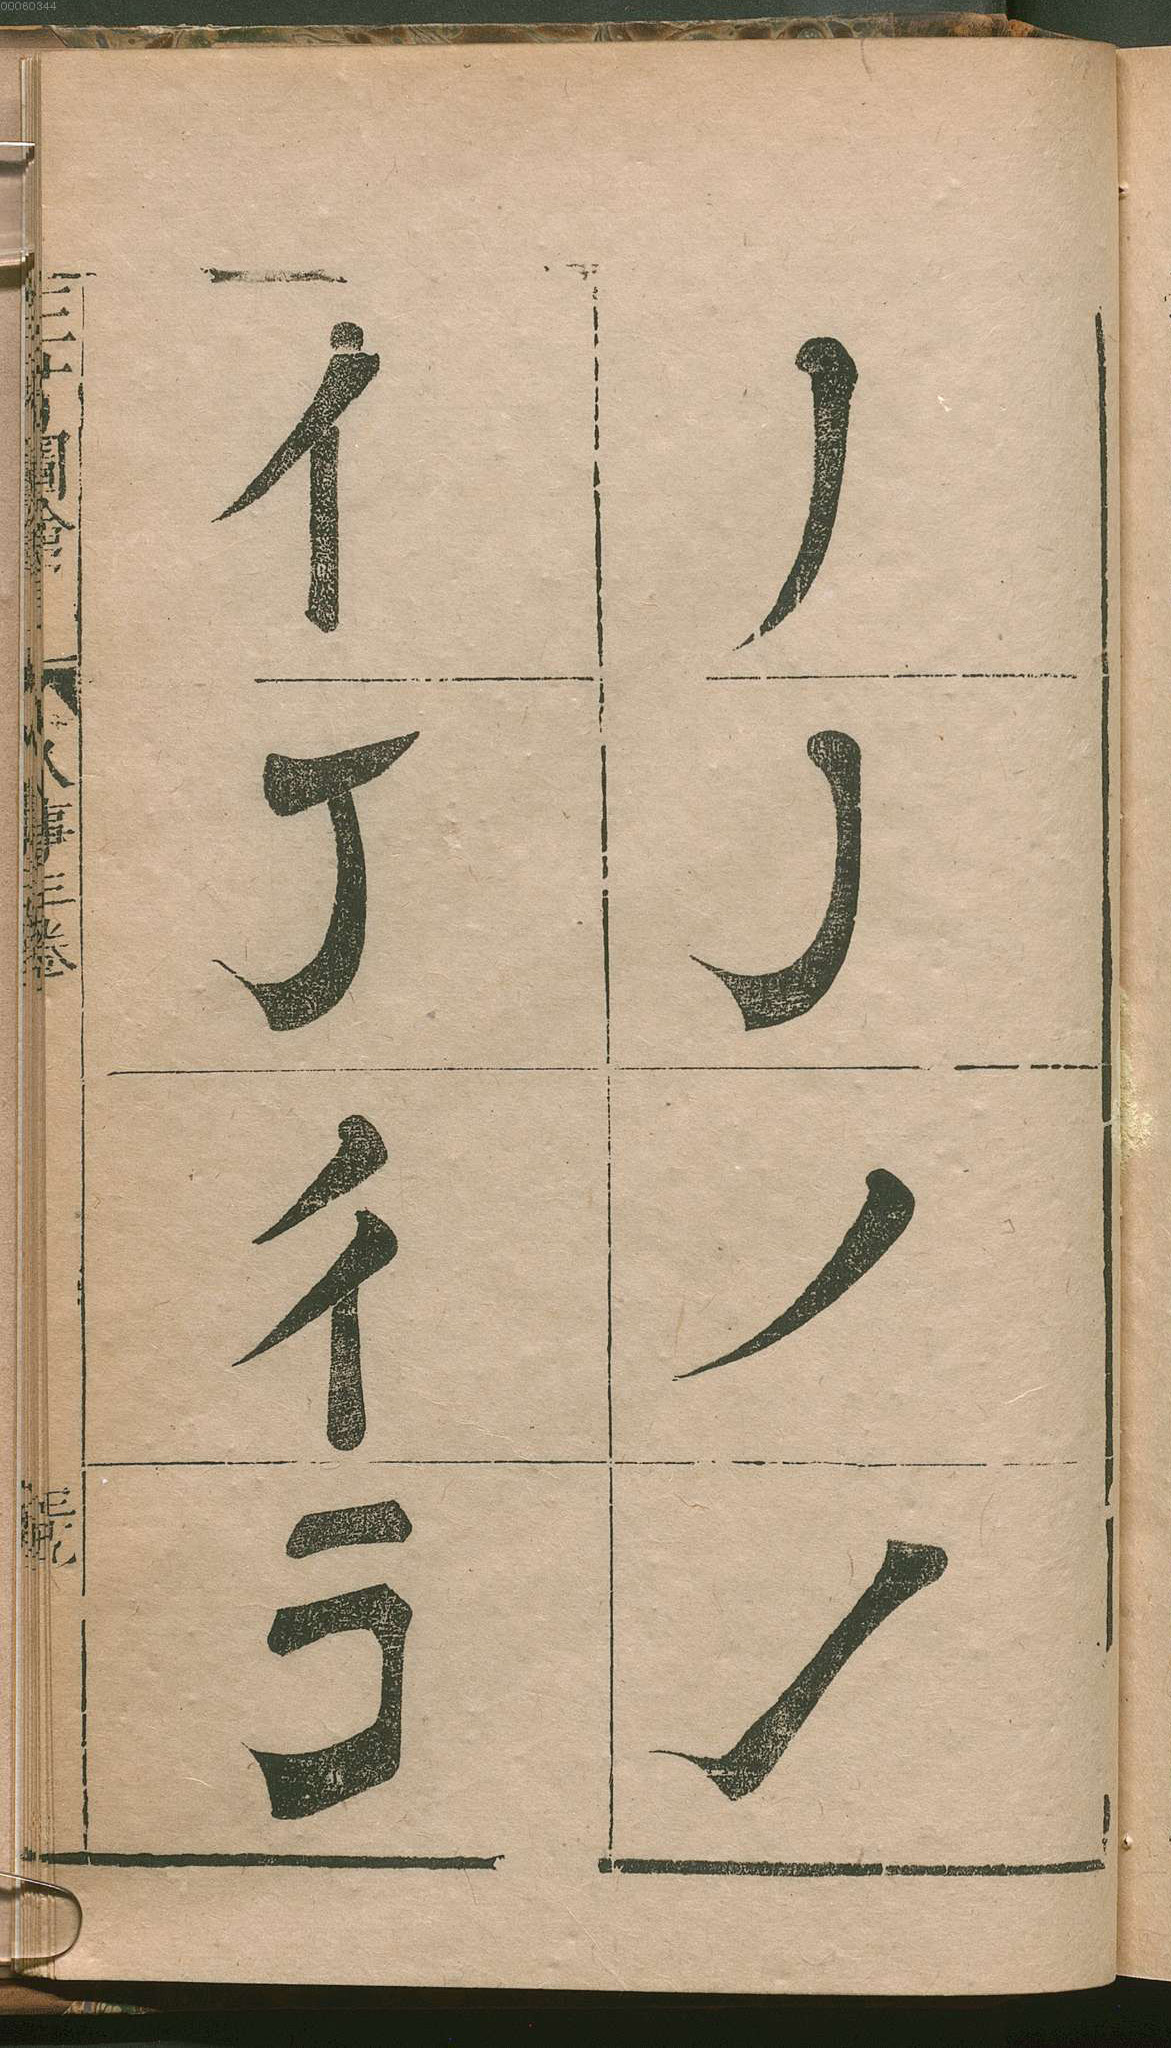 00060344
丿
丿
丿
丿
亻
丁
彳
三才圖會
人事三卷